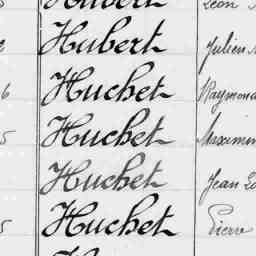 Hubert Léon
Hubert Julien
6 Huchet Raymond
5 Huchet Maximin
Huchet Jean
5 Huchet Pierre